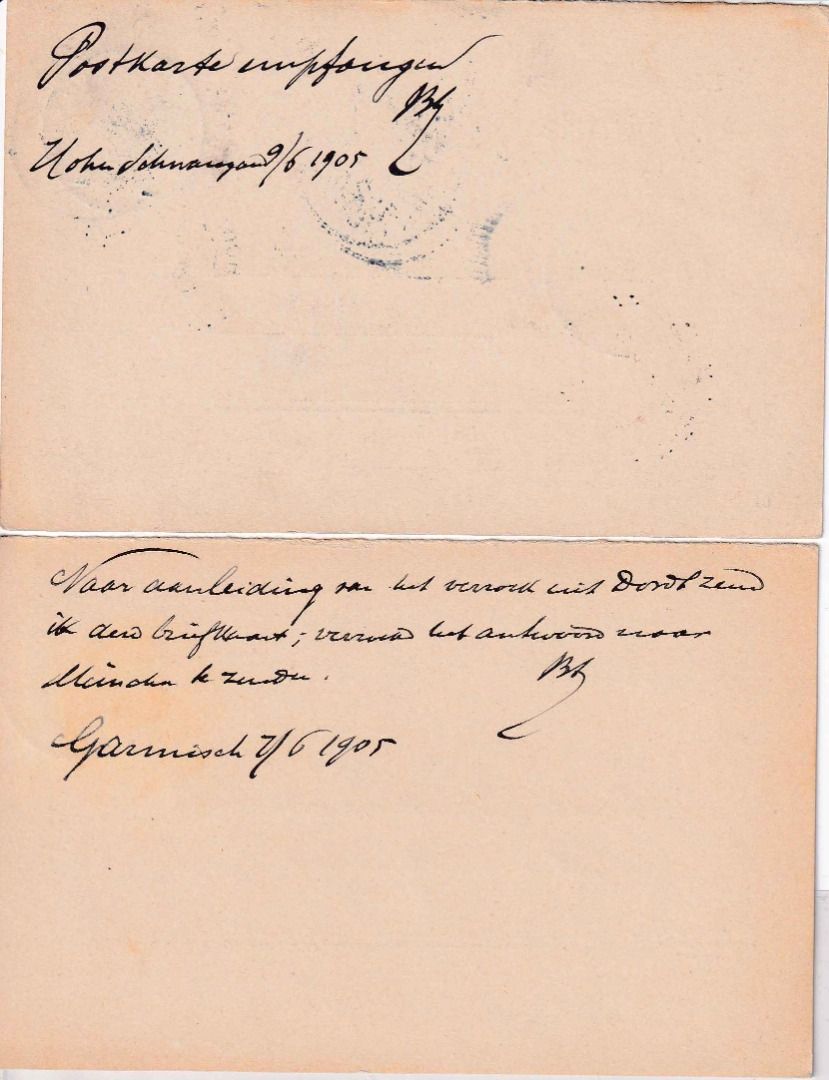 Postkarte empfangen
Bh
Hohenschwangau 9/6 1905
Naar aanleiding van het verzoek uit Dordt zend
ik deze briefkaart; verzoek het antwoord naar
München te zenden.
Bh
Garmisch 7/6 1905